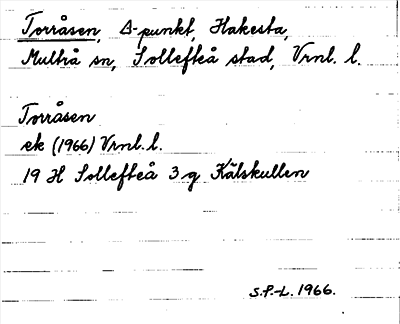 Torråsen, Δ-punkt, Hakesta,
Multrå sn, Sollefteå stad, Vrnl. l.
Torråsen
ek (1966) Vrnl. l.
19 H Sollefteå 3 g Kälskullen
S.P-L. 1966.